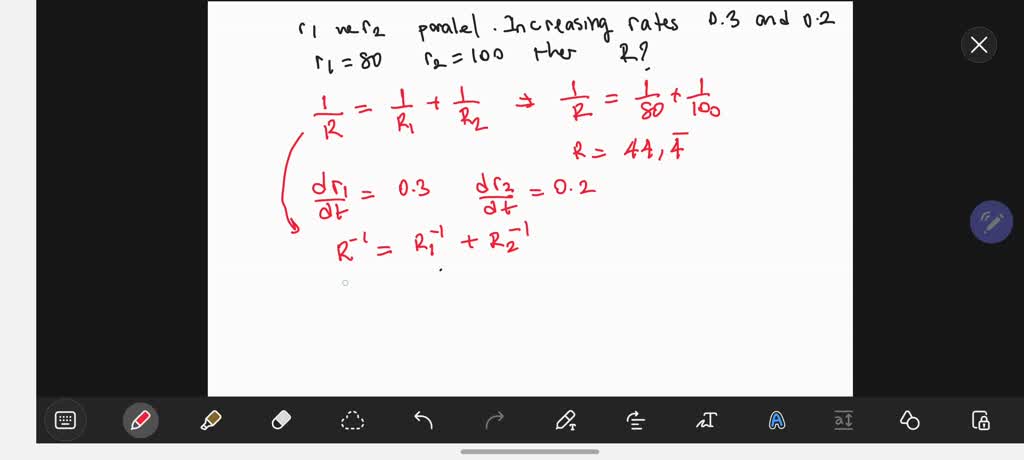 r1 ve r2 paralel. Increasing rates 0.3 and 0.2
r1 = 80 r2 = 100 then R?
1/R = 1/R1 + 1/R2 → 1/R = 1/80 + 1/100
R = 44,4̅
dr1/dt = 0.3 dr2/dt = 0.2
R⁻¹ = R1⁻¹ + R2⁻¹